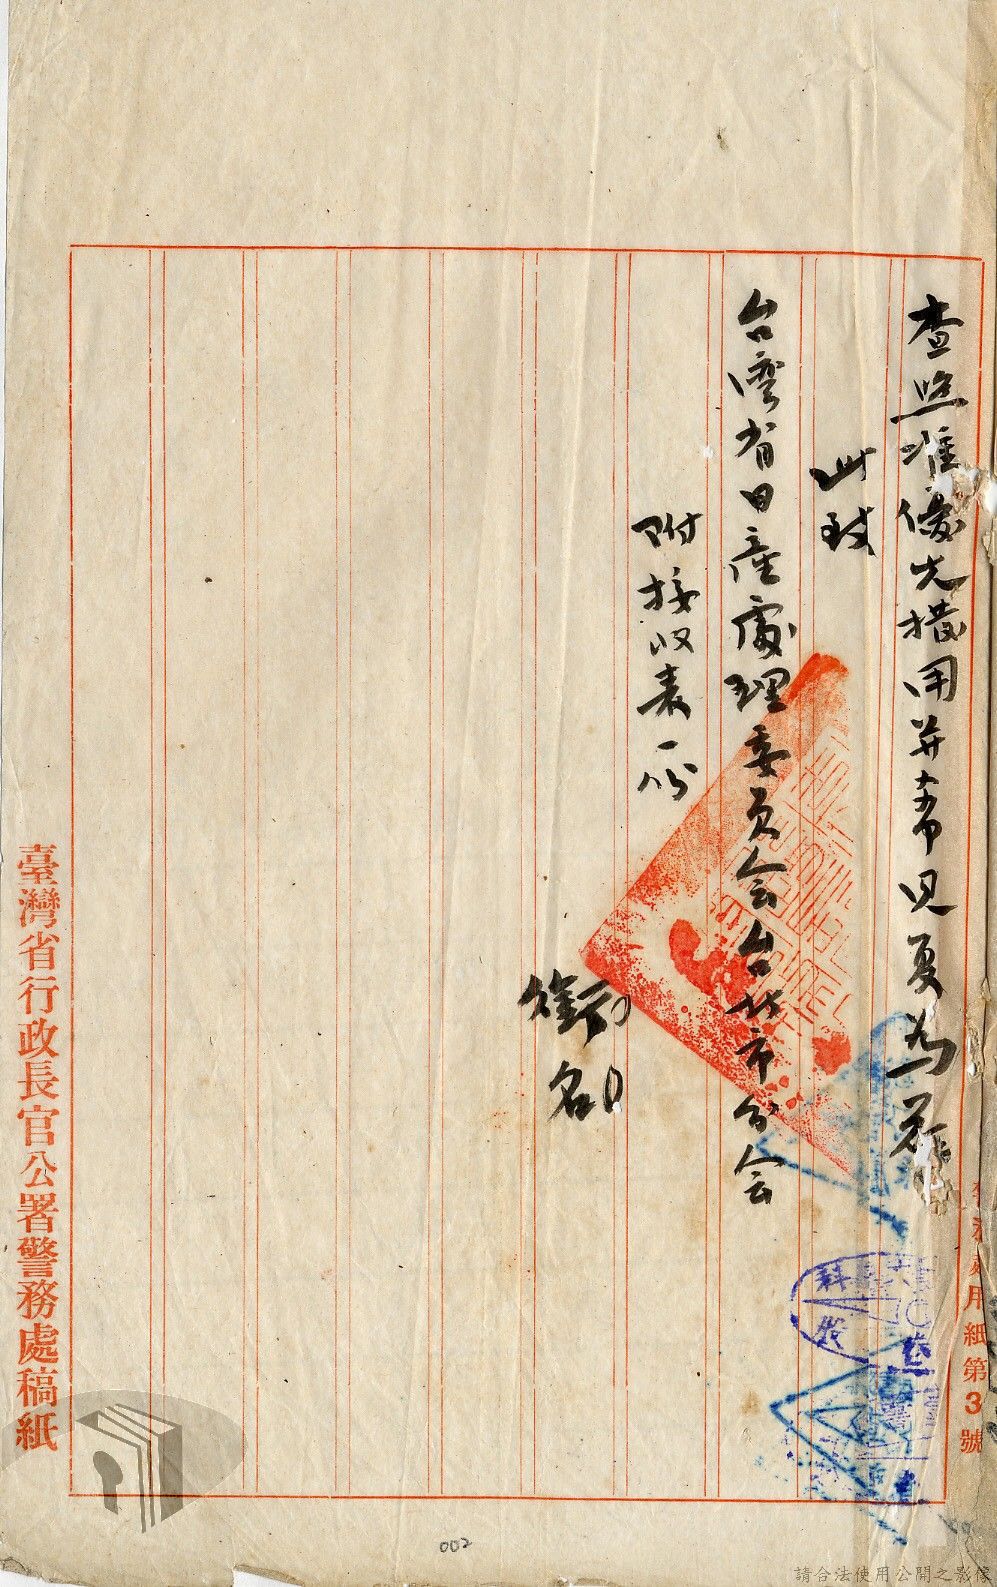 查照准優先撥用并希見复為荷
此致
台湾省日產處理委員会台北市分会
附接收表一份
銜
名
臺灣省行政長官公署警務處稿紙
用紙第3號
002
請合法使用公開之影像